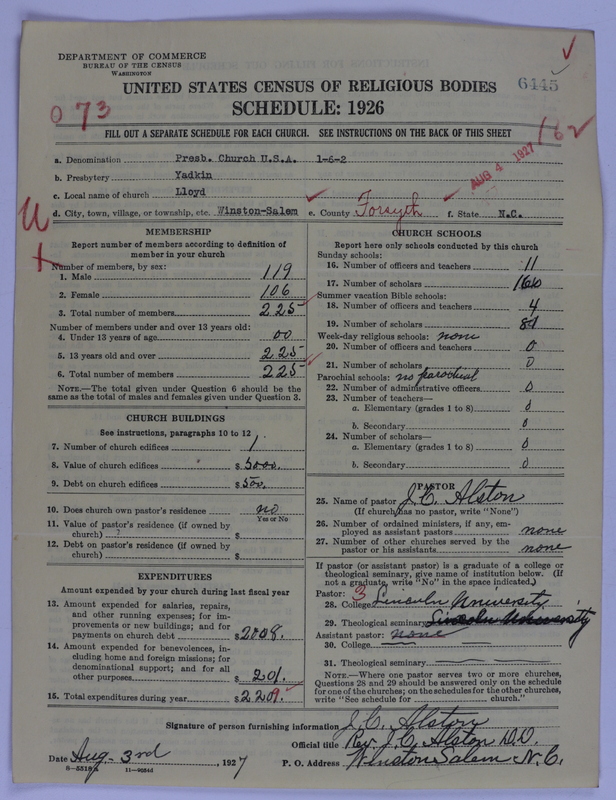 DEPARTMENT OF COMMERCE
BUREAU OF THE CENSUS
WASHINGTON
UNITED STATES CENSUS OF RELIGIOUS BODIES
6445
SCHEDULE: 1926
0 73
FILL OUT A SEPARATE SCHEDULE FOR EACH CHURCH. SEE INSTRUCTIONS ON THE BACK OF THIS SHEET
162
AUG 4 1927
a. Denomination Presb. Church U.S.A. 1-6-2
b. Presbytery Yadkin
c. Local name of church Lloyd
d. City, town, village, or township, etc. Winston-Salem e. County Forsyth f. State N.C.
MEMBERSHIP
Report number of members according to definition of
member in your church
Number of members, by sex:
1. Male 119
2. Female 106
3. Total number of members 225
Number of members under and over 13 years old:
4. Under 13 years of age 00
5. 13 years old and over 225
6. Total number of members 225
NOTE.—The total given under Question 6 should be the
same as the total of males and females given under Question 3.
CHURCH BUILDINGS
See instructions, paragraphs 10 to 12
7. Number of church edifices 1
8. Value of church edifices $5000.
9. Debt on church edifices $500.
10. Does church own pastor's residence no
Yes or No
11. Value of pastor's residence (if owned by
church) $
12. Debt on pastor's residence (if owned by
church) $
EXPENDITURES
Amount expended by your church during last fiscal year
13. Amount expended for salaries, repairs,
and other running expenses; for im-
provements or new buildings; and for
payments on church debt $2008.
14. Amount expended for benevolences, in-
cluding home and foreign missions; for
denominational support; and for all
other purposes $201.
15. Total expenditures during year $2209.
CHURCH SCHOOLS
Report here only schools conducted by this church
Sunday schools:
16. Number of officers and teachers 11
17. Number of scholars 160
Summer vacation Bible schools:
18. Number of officers and teachers 4
19. Number of scholars 81
Week-day religious schools: none
20. Number of officers and teachers 0
21. Number of scholars 0
Parochial schools: no parochial
22. Number of administrative officers 0
23. Number of teachers—
a. Elementary (grades 1 to 8) 0
b. Secondary 0
24. Number of scholars—
a. Elementary (grades 1 to 8) 0
b. Secondary 0
PASTOR
25. Name of pastor J. C. Alston
(If church has no pastor, write "None")
26. Number of ordained ministers, if any, em-
ployed as assistant pastors none
27. Number of other churches served by the
pastor or his assistants none
If pastor (or assistant pastor) is a graduate of a college or
theological seminary, give name of institution below. (If
not a graduate, write "No" in the space indicated.)
Pastor: 3
28. College Lincoln University
29. Theological seminary Lincoln University
Assistant pastor: none
30. College
31. Theological seminary
NOTE.—Where one pastor serves two or more churches,
Questions 28 and 29 should be answered only on the schedule
for one of the churches; on the schedules for the other churches,
write "See schedule for church."
Signature of person furnishing information J. C. Alston
Official title Rev. J. C. Alston D.D.
Date Aug-3rd, 1927 P. O. Address Winston Salem N.C.